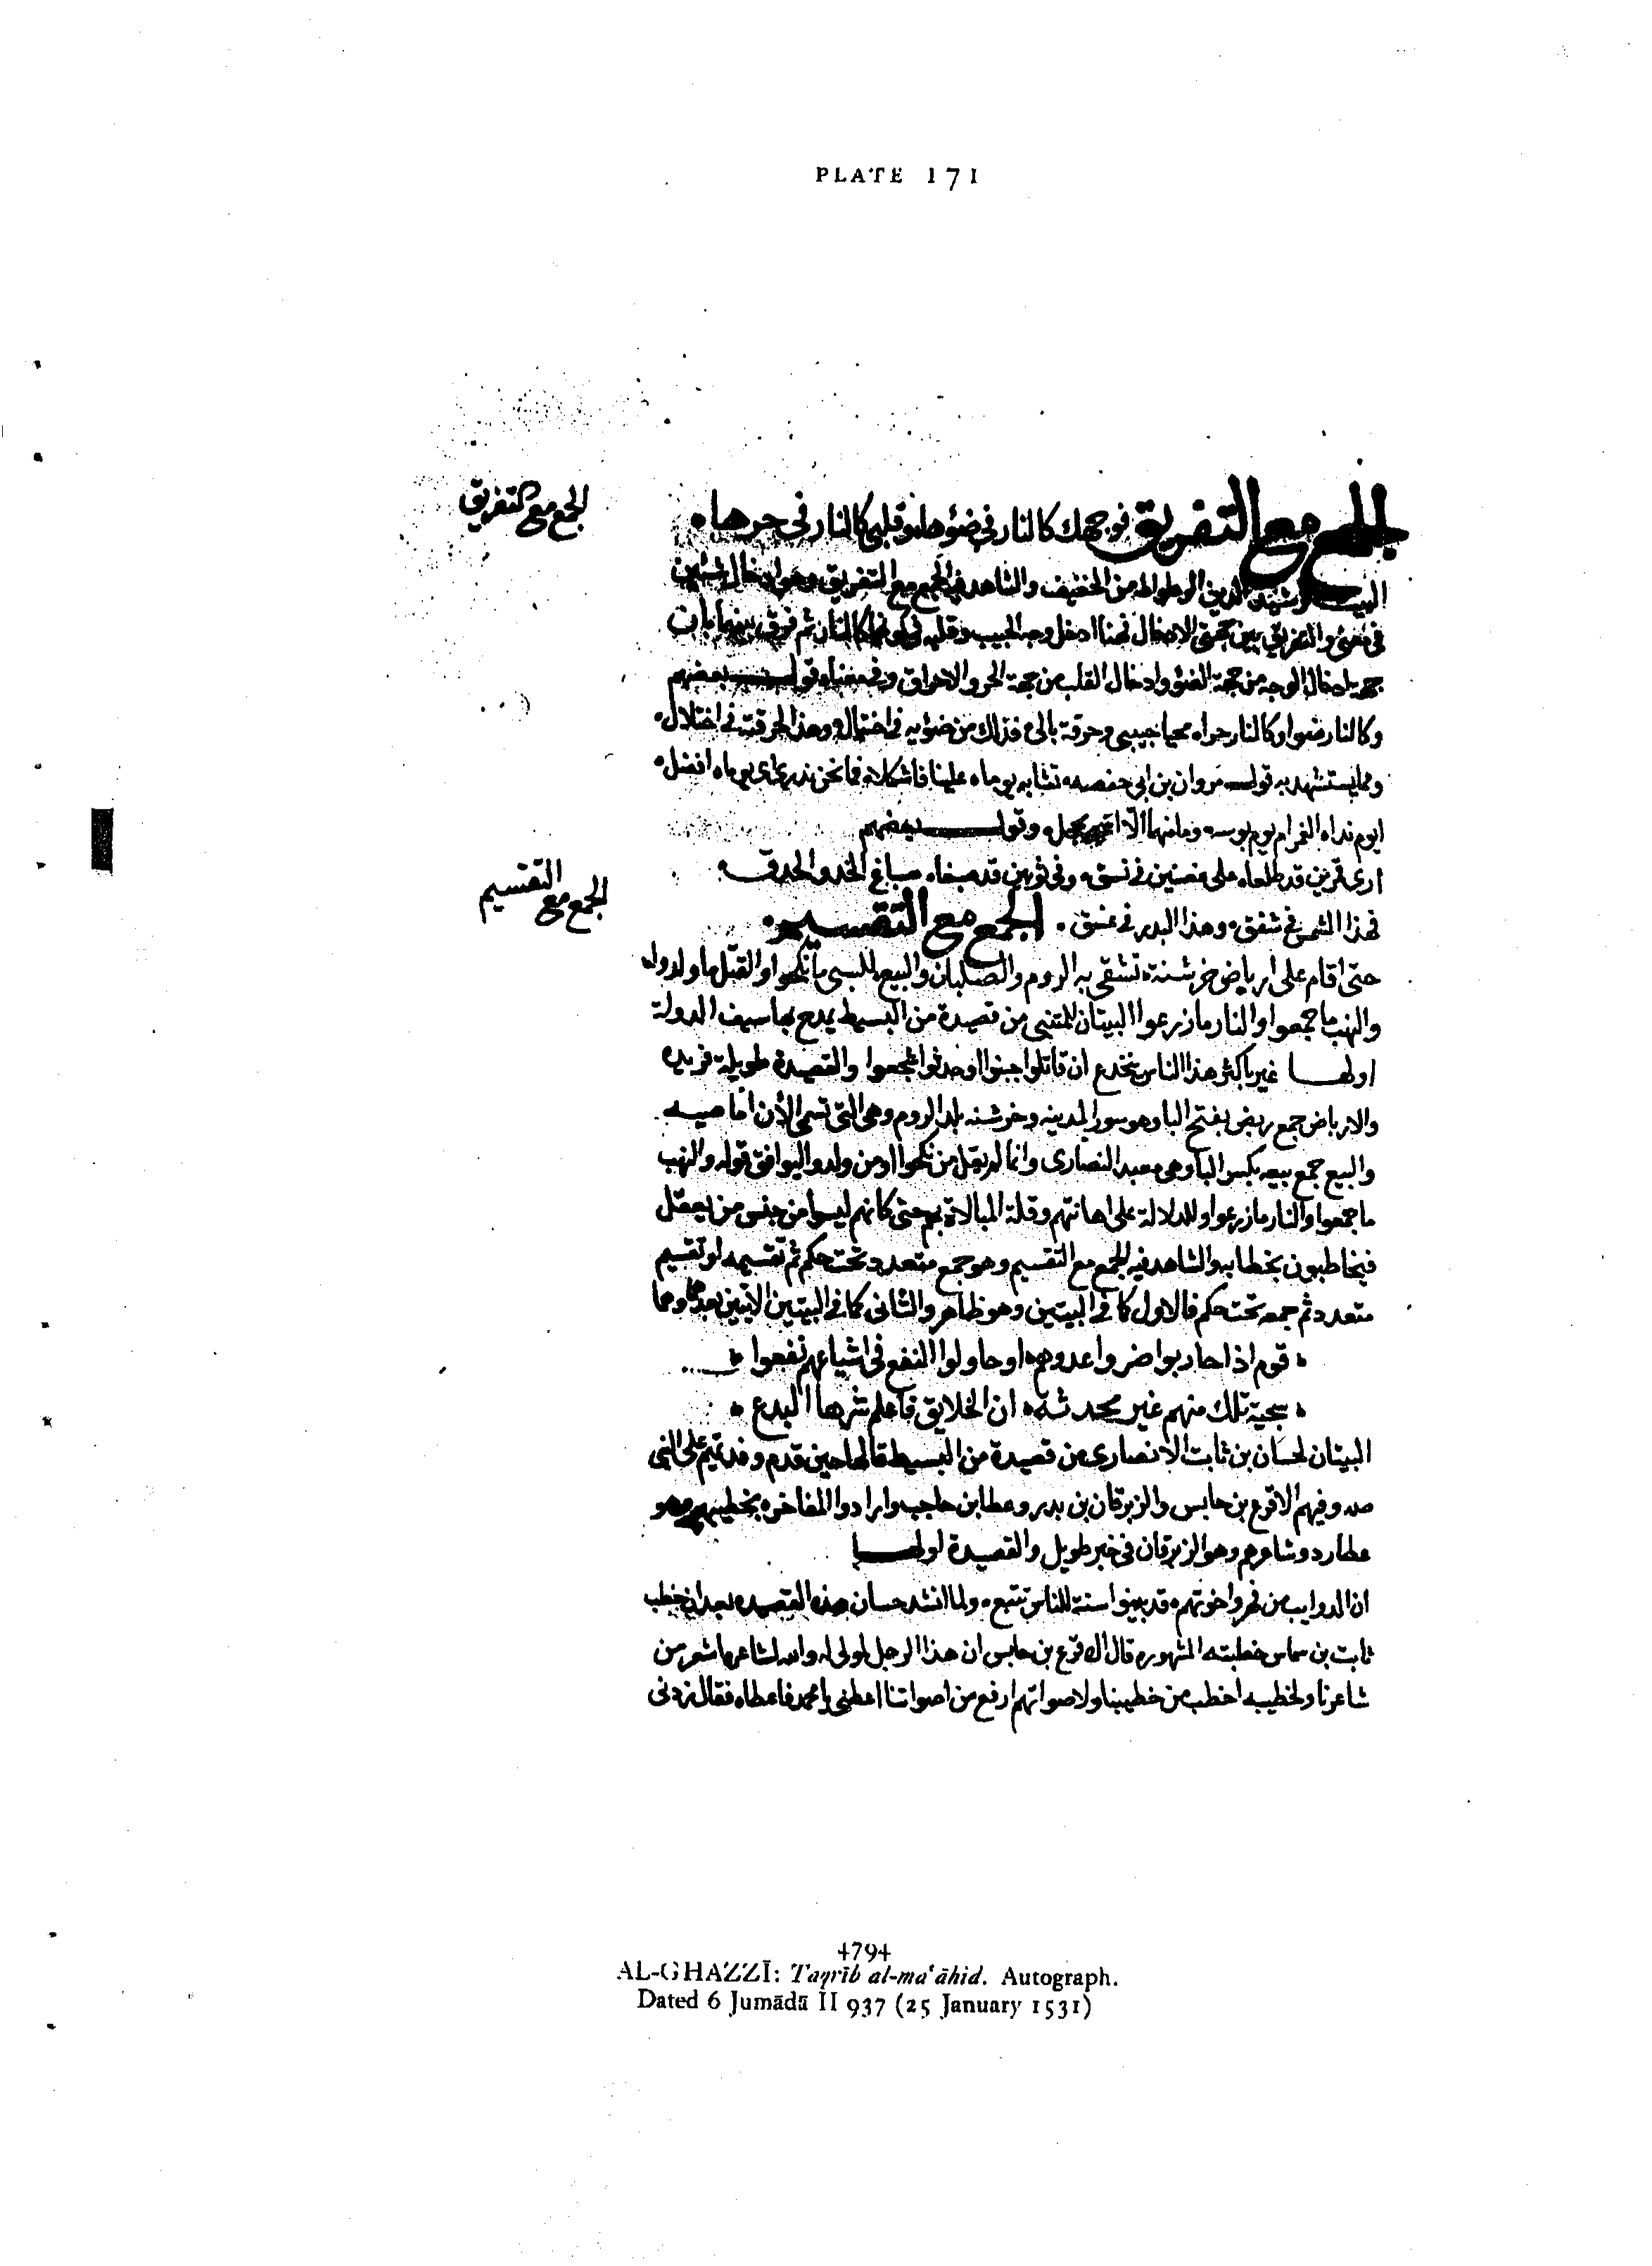 PLATE 171
الجمع مع التفريق
الجمع مع التفريق فوجهك كالنار في ضوئها وقلبي كالنار في حرها
البيت لرشيد الدين الوطواط من الخفيف والشاهد فيه الجمع مع التفريق وهو ادخال شيئين
في معنى والتفريق بين جهتي الادخال فهنا ادخل وجه الحبيب وقلبه في كونهما كالنار ثم فرق بينهما بان
جهة ادخال الوجه من جهة الضوء وادخال القلب من جهة الحر والاحراق وفي معناه قول بعضهم
وكالنار ضوا وكالنار حرا محيا حبيبي وحرقة بالي فذلك من ضوئه في اختيال وهذا لحرقته في اختلال
ومما يستشهد به قول مروان بن ابي حفصه تشابه يوماه علينا فاشكلا فما نحن ندري اي يوميه افضل
ايوم نداه الغمر ام يوم بوسه وما منهما الا اغر محجل وقول بعضهم
ارى قمرين قد طلعا على غصنين في نسق وفي ثوبين قد صبغا صباغ الخد والحدق
فهذا الشمس في شفق وهذا البدر في غسق الجمع مع التقسيم
الجمع مع التقسيم
حتى اقام على ارباض خرشنة تشقى به الروم والصلبان والبيع للسبي ما نكحوا والقتل ما ولدوا
والنهب ما جمعوا والنار ما زرعوا البيتان للمتنبي من قصيدة من البسيط يمدح بها سيف الدولة
اولها غيري باكثر هذا الناس ينخدع ان قاتلوا جبنوا او حدثوا شجعوا والقصيدة طويلة فريده
والارباض جمع ربض بفتح البا وهو سور المدينه وخرشنه بلد الروم وهي التي تسمى الأن
والبيع جمع بيعه بكسر البا وهي معبد النصارى وانما لم يقل من نكحوا او من ولدوا ليوافق قوله والنهب
ما جمعوا والنار ما زرعوا وللدلالة على اهانتهم وقلة المبالاة بهم حتى كانهم ليسوا من جنس من يعقل
فيخاطبون بخطابه والشاهد فيه الجمع مع التقسيم وهو جمع متعدد تحت حكم ثم تقسيمه او تقسيم
متعدد ثم جمعه تحت حكم فالاول كما في البيتين وهو ظاهر والثاني كما في البيتين الآتيين بعدهما وهما
قوم اذا حاربوا ضروا عدوهم او حاولوا النفع في اشياعهم نفعوا
سجية تلك منهم غير محدثة ان الخلايق فاعلم شرها البدع
البيتان لحسان بن ثابت الانصاري من قصيدة من البسيط قالها حين قدم وفد تميم على النبي
صلم وفيهم الاقرع بن حابس والزبرقان بن بدر وعطا بن حاجب وارادوا المفاخره بخطيبهم وهو
عطارد وشاعرهم وهو الزبرقان في خبر طويل والقصيدة اولها
ان الدوايب من فهر واخوتهم قد بينوا سنة للناس تتبع ولما انشد حسان هذه القصيده بعد ان خطب
ثابت بن خطبته المشهوره قال الاقرع بن حابس ان هذا الرجل لمولى له والله لشاعره اشعر من
شاعرنا ولخطيبه اخطب من خطيبنا ولاصواتهم ارفع من اصواتنا اعطني يا محمد فاعطاه فقال زدني
4794
AL-GHAZZĪ: Taqrīb al-ma'āhid. Autograph.
Dated 6 Jumādā II 937 (25 January 1531)